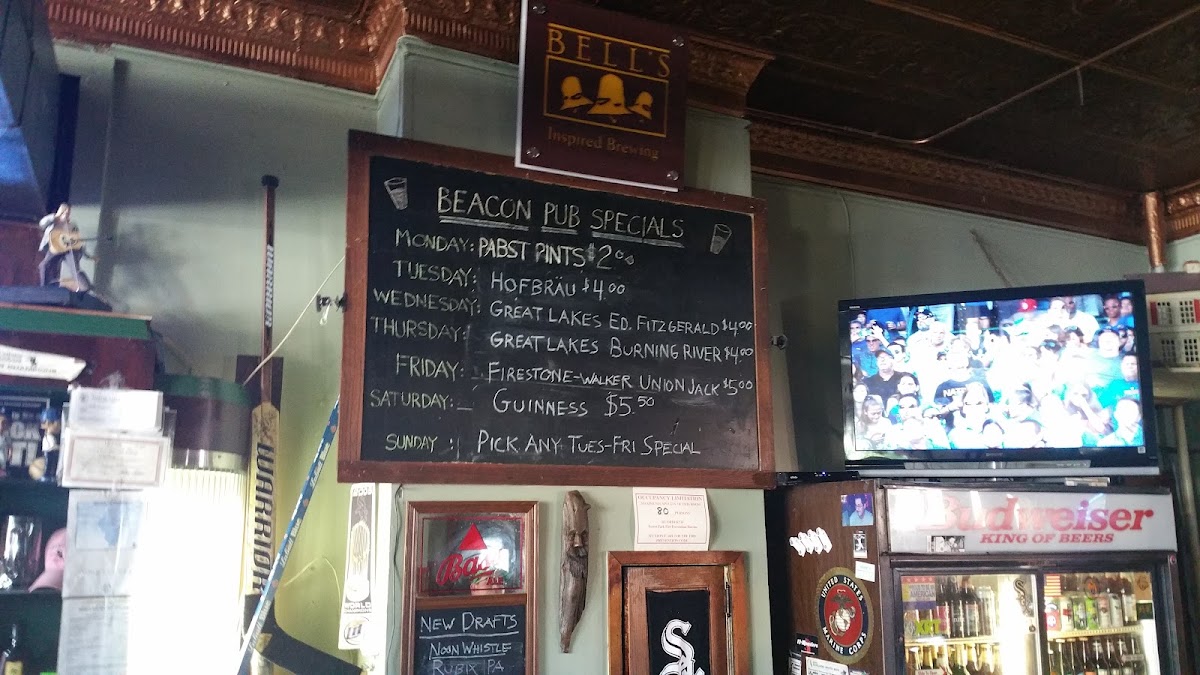 BELL'S
Inspired Brewing
BEACON PUB SPECIALS
MONDAY: PABST PINTS $2.00
TUESDAY: HOFBRÄU $4.00
WEDNESDAY: GREAT LAKES ED. FITZGERALD $4.00
THURSDAY: GREAT LAKES BURNING RIVER $4.00
FRIDAY: FIRESTONE-WALKER UNION JACK $5.00
SATURDAY: GUINNESS $5.50
SUNDAY: PICK ANY TUES-FRI SPECIAL
WARRIOR
WARRIOR
OCCUPANCY LIMITATION
80
Bass
ALE
NEW DRAFTS
NOON WHISTLE
RUBIX PA
UNITED STATES
MARINE CORPS
Budweiser
KING OF BEERS